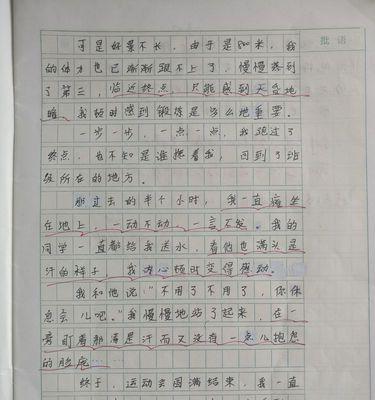 批语
可是好景不长，由于是800米，我
的体力也已渐渐跟不上了，慢慢落到
了第三，临近终点，只能感到天昏地
暗，我顿时感到锻炼是多么地重要。
一步一步，一点一点，我跑过了
终点，也不知是谁搀着我，回到了班
级所在的地方。
那过去的半个小时，我一直瘫坐
在地上，一动不动，一言不发。我的
同学一直都给我送水，看他也满头是
汗的样子，我内心顿时变得感动。
我和他说："不用了不用了，你休
息会儿吧。"我慢慢地站了起来，在一
旁盯着那满是汗而又没有一点儿抱怨
的脸庞……
终于，运动会圆满结束，我一直